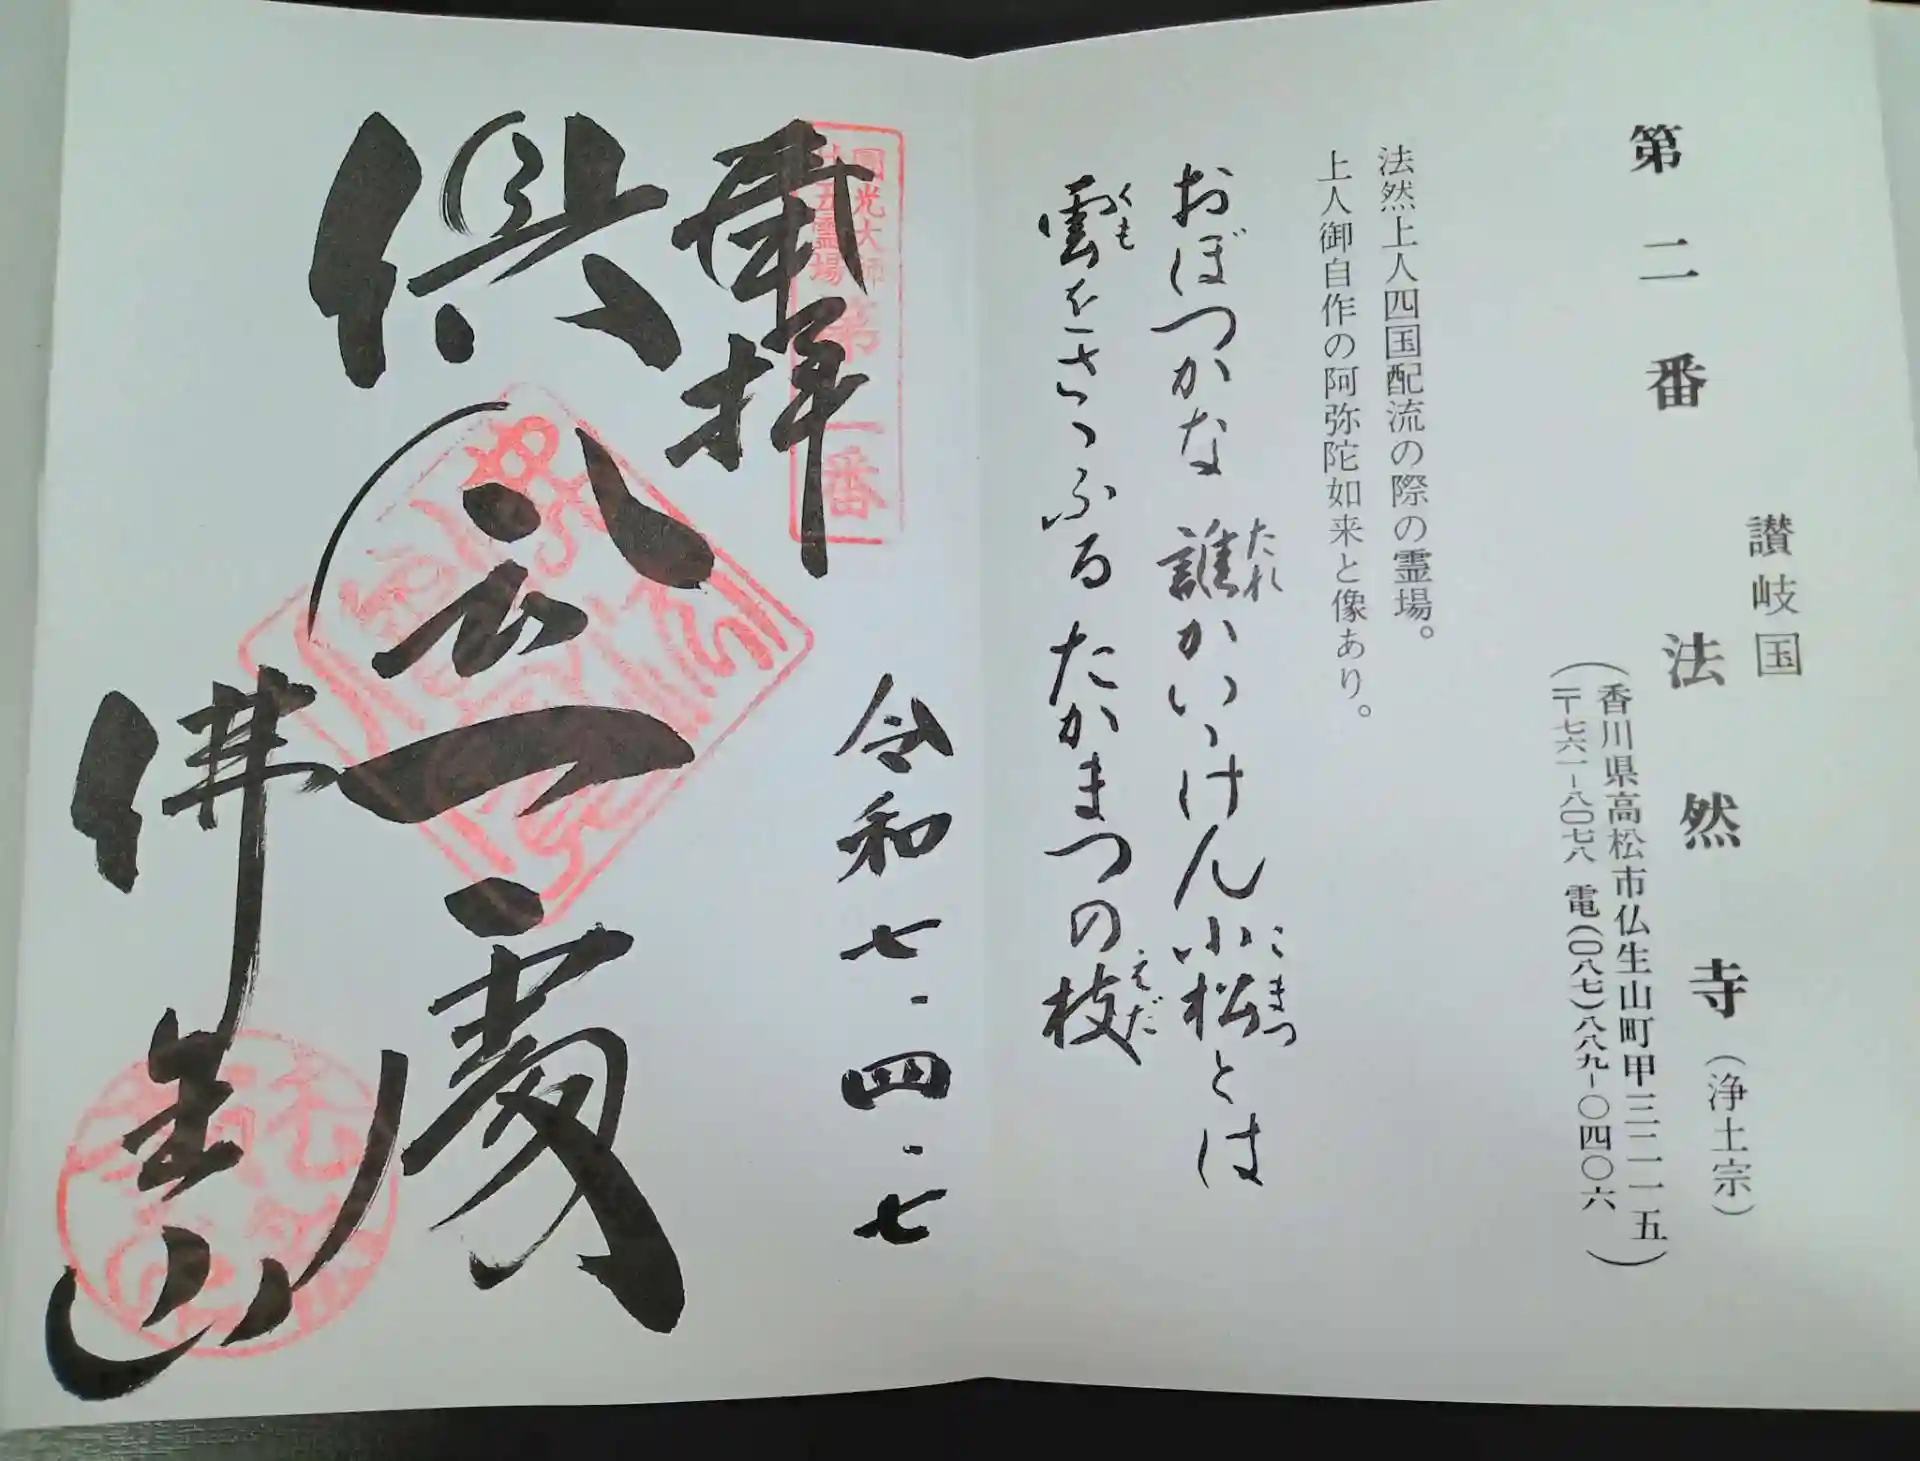 第二番
讃岐国
法然寺（浄土宗）
（香川県高松市仏生山町甲三二一五
〒七六一-八〇七八 電(〇八七)八八九-〇四〇六）
法然上人四国配流の際の霊場。
上人御自作の阿弥陀如来と像あり。
おぼつかな 誰かいゝけん小松とは
たれ
こまつ
雲をさゝふる たかまつの枝
くも
えだ
圓光大師
廿五霊場
第二番
奉拝
令和七.四.七
倶会一處
佛生山